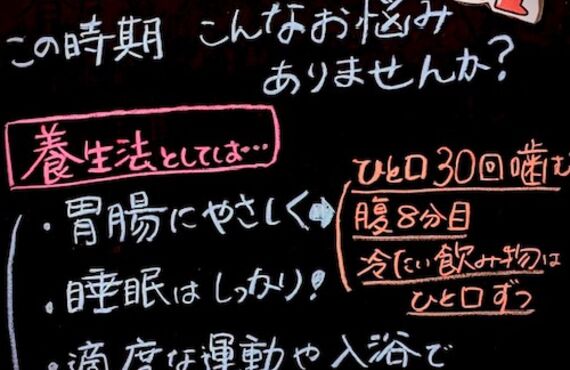 この時期 こんなお悩み
ありませんか?
養生法としては…
・胃腸にやさしく➡
ひと口30回噛む
腹8分目
冷たい飲み物は
ひと口ずつ
・睡眠はしっかり!
・適度な運動や入浴で